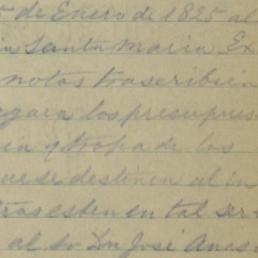 de Enero de 1825 al
in Santa Maria Ex
notas trascribien
egara los presupues
in y tropa de los
que se destinen al in
tras esten en tal ser
al Sr Dn José Anas